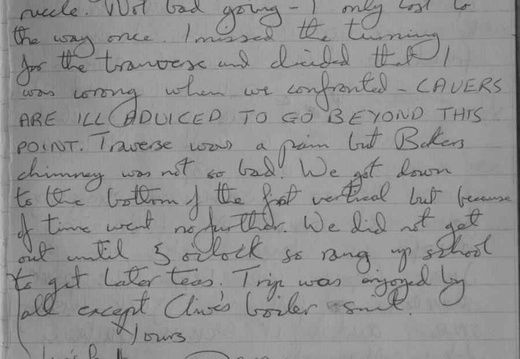 Not bad going - I only lost to
the way once. I missed the turning
for the tranverse and dicided that I
was wrong when we confronted - CAVERS
ARE ILL ADVICED TO GO BEYOND THIS
POINT. Traverse was a pain but Bakers
chimney was not so bad. We got down
to the bottom of the first vertical but because
of time went no further. We did not get
out until 5 oclock so rang up school
to get later teas. Trip was enjoyed by
all except Clive's boiler suit.
Yours